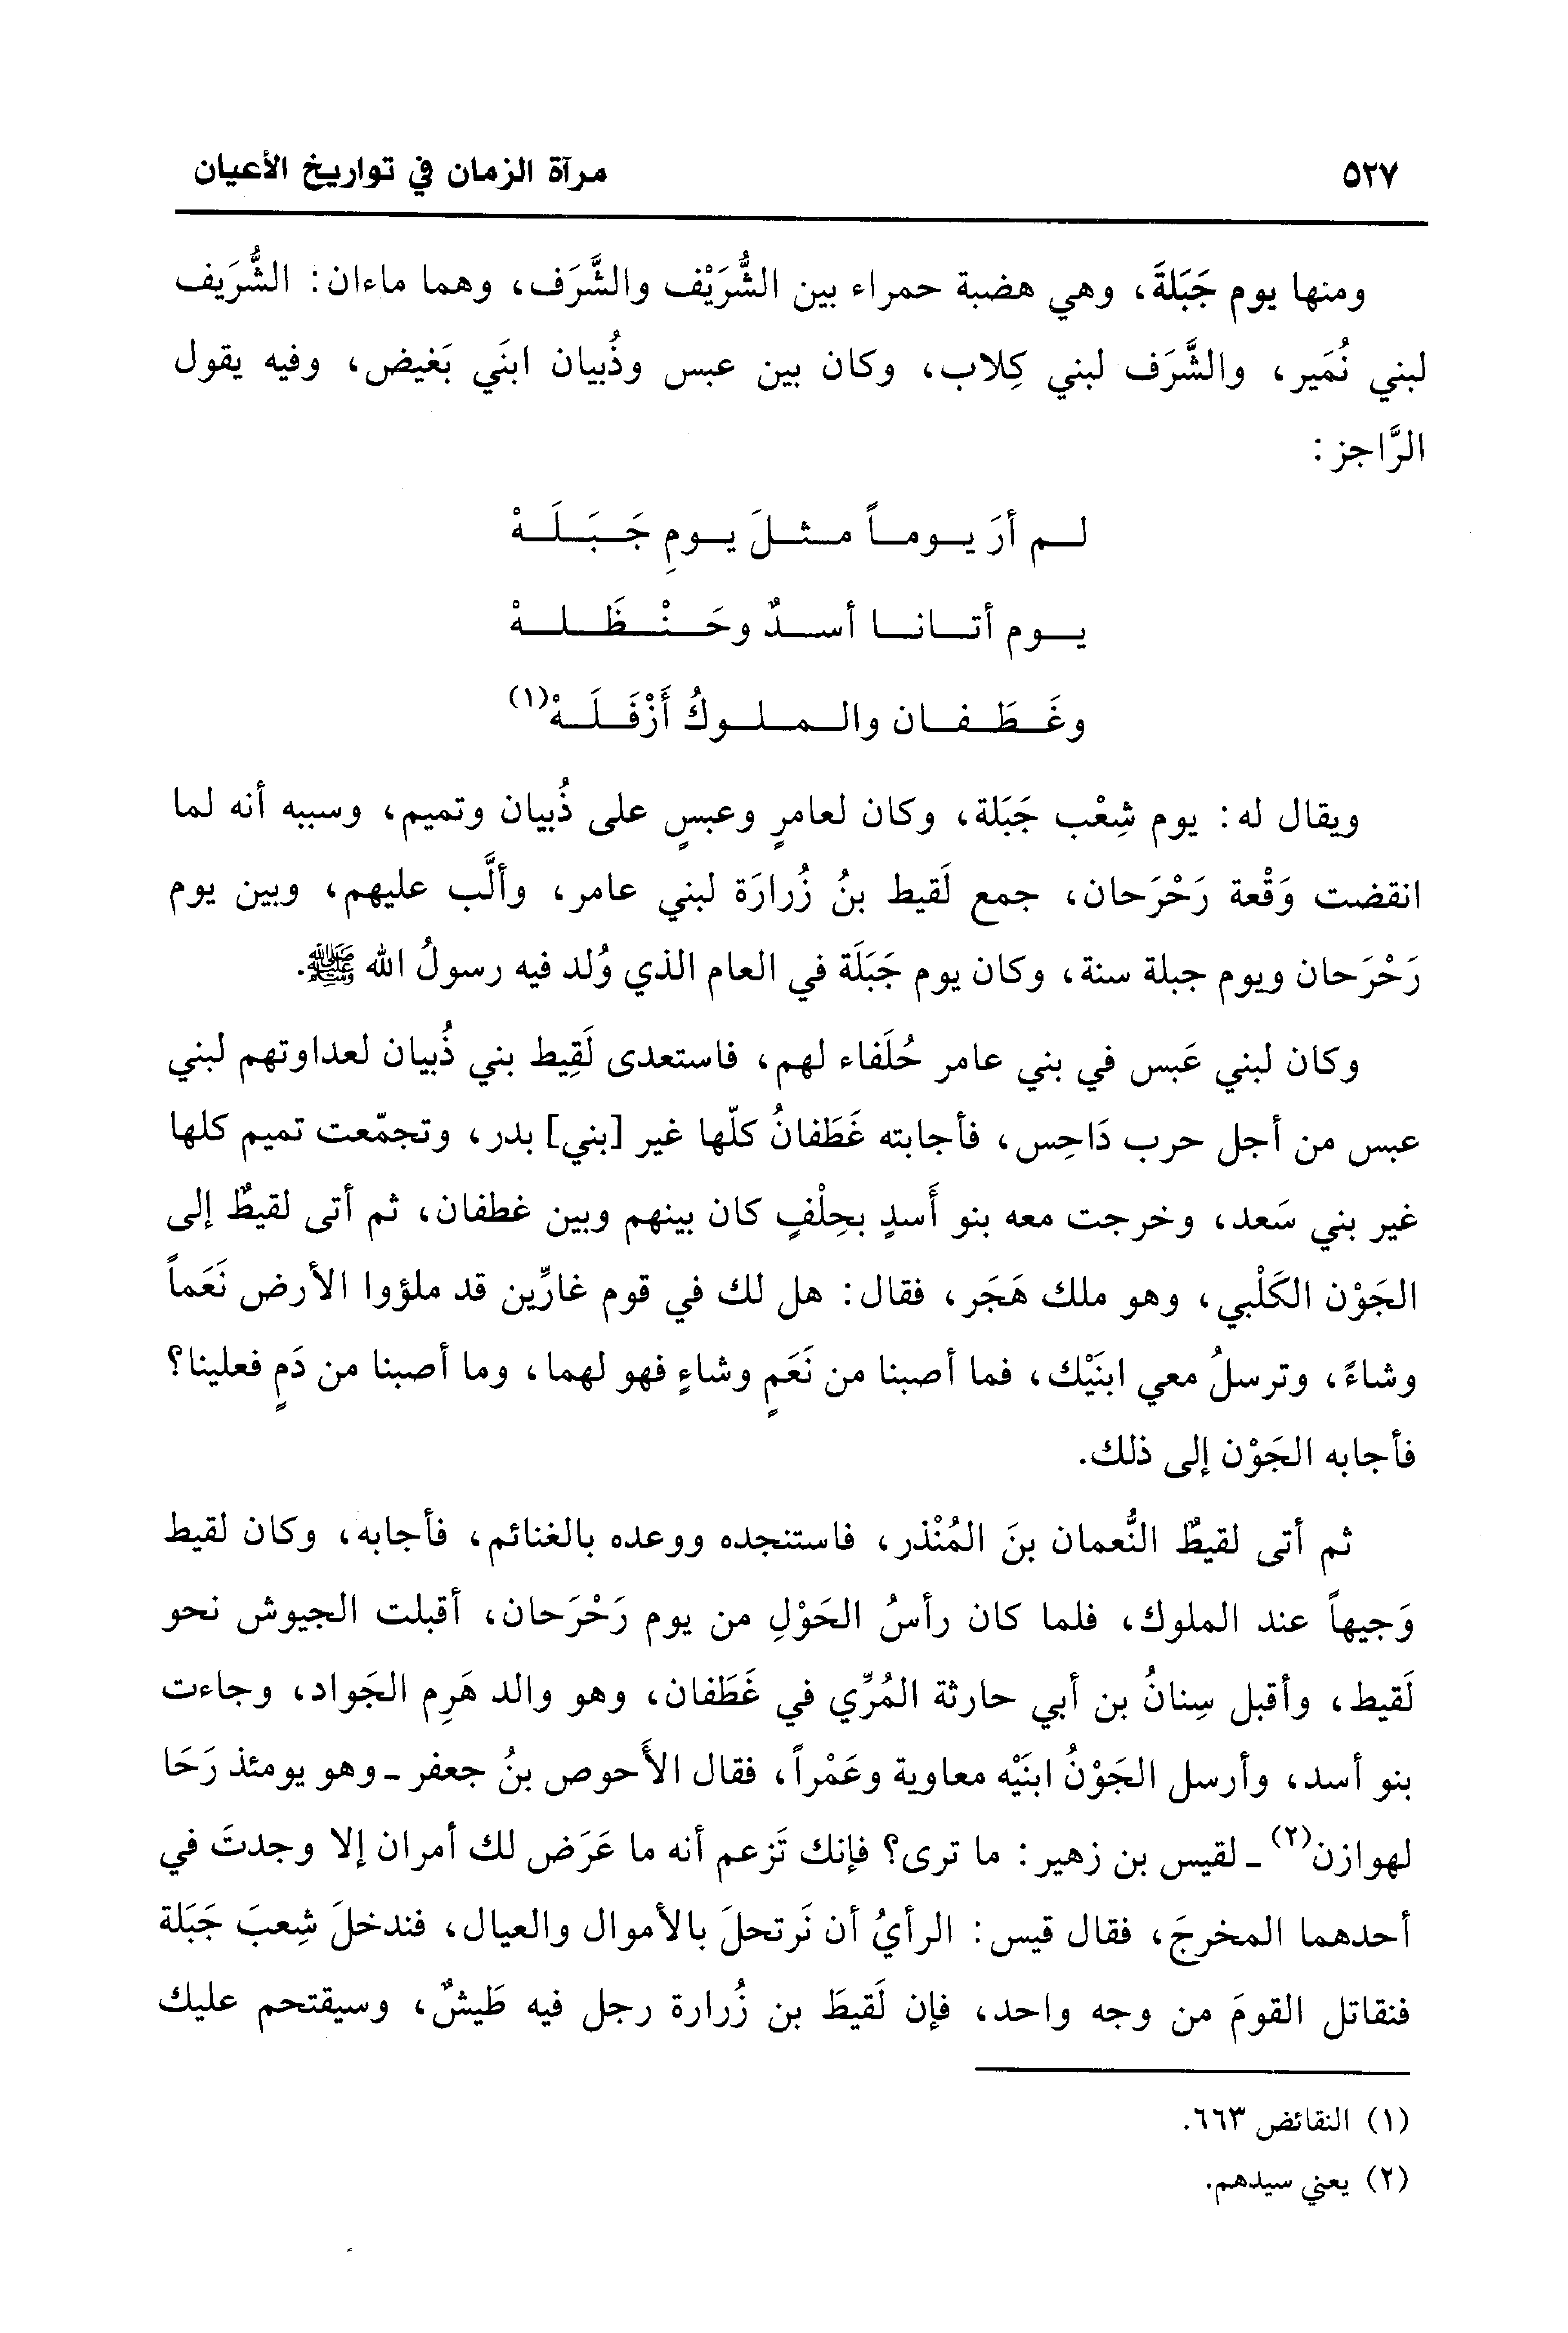 ٥٢٧
مرآة الزمان في تواريخ الأعيان
ومنها يوم جَبَلةَ، وهي هضبة حمراء بين الشُّرَيْف والشَّرَف، وهما ماءان: الشُّرَيف
لبني نُمَير، والشَّرَف لبني كِلاب، وكان بين عبس وذُبيان ابنَي بَغيض، وفيه يقول
الرَّاجز:
لم أرَ يوماً مثلَ يومِ جَبَلَهْ
يوم أتانا أسدٌ وحَنْظَلهْ
وغَطَفان والملوكُ أَزْفَلَهْ(١)
ويقال له: يوم شِعْب جَبَلة، وكان لعامرٍ وعبسٍ على ذُبيان وتميم، وسببه أنه لما
انقضت وَقْعة رَحْرَحان، جمع لَقيط بنُ زُرارَة لبني عامر، وألَّب عليهم، وبين يوم
رَحْرَحان ويوم جبلة سنة، وكان يوم جَبَلَة في العام الذي وُلد فيه رسولُ الله ﷺ.
وكان لبني عَبس في بني عامر حُلَفاء لهم، فاستعدى لَقِيط بني ذُبيان لعداوتهم لبني
عبس من أجل حرب دَاحِس، فأجابته غَطَفانُ كلّها غير [بني] بدر، وتجمّعت تميم كلها
غير بني سَعد، وخرجت معه بنو أَسدٍ بحِلْفٍ كان بينهم وبين غطفان، ثم أتى لقيطٌ إلى
الجَوْن الكَلْبي، وهو ملك هَجَر، فقال: هل لك في قوم غارِّين قد ملؤوا الأرض نَعَماً
وشاءً، وترسلُ معي ابنَيْك، فما أصبنا من نَعَمٍ وشاءٍ فهو لهما، وما أصبنا من دَمٍ فعلينا؟
فأجابه الجَوْن إلى ذلك.
ثم أتى لقيطٌ النُّعمان بنَ المُنْذر، فاستنجده ووعده بالغنائم، فأجابه، وكان لقيط
وَجيهاً عند الملوك، فلما كان رأسُ الحَوْلِ من يوم رَحْرَحان، أقبلت الجيوش نحو
لَقيط، وأقبل سِنانُ بن أبي حارثة المُرِّي في غَطَفان، وهو والد هَرِم الجَواد، وجاءت
بنو أسد، وأرسل الجَوْنُ ابنَيْه معاوية وعَمْراً، فقال الأَحوص بنُ جعفر ـ وهو يومئذ رَحَا
لهوازن(٢) ـ لقيس بن زهير: ما ترى؟ فإنك تَزعم أنه ما عَرَض لك أمران إلا وجدتَ في
أحدهما المخرجَ، فقال قيس: الرأيُ أن نَرتحلَ بالأموال والعيال، فندخلَ شِعبَ جَبَلة
فنقاتل القومَ من وجه واحد، فإن لَقيطَ بن زُرارة رجل فيه طَيشٌ، وسيقتحم عليك
(١) النقائض ٦٦٣.
(٢) يعني سيدهم.